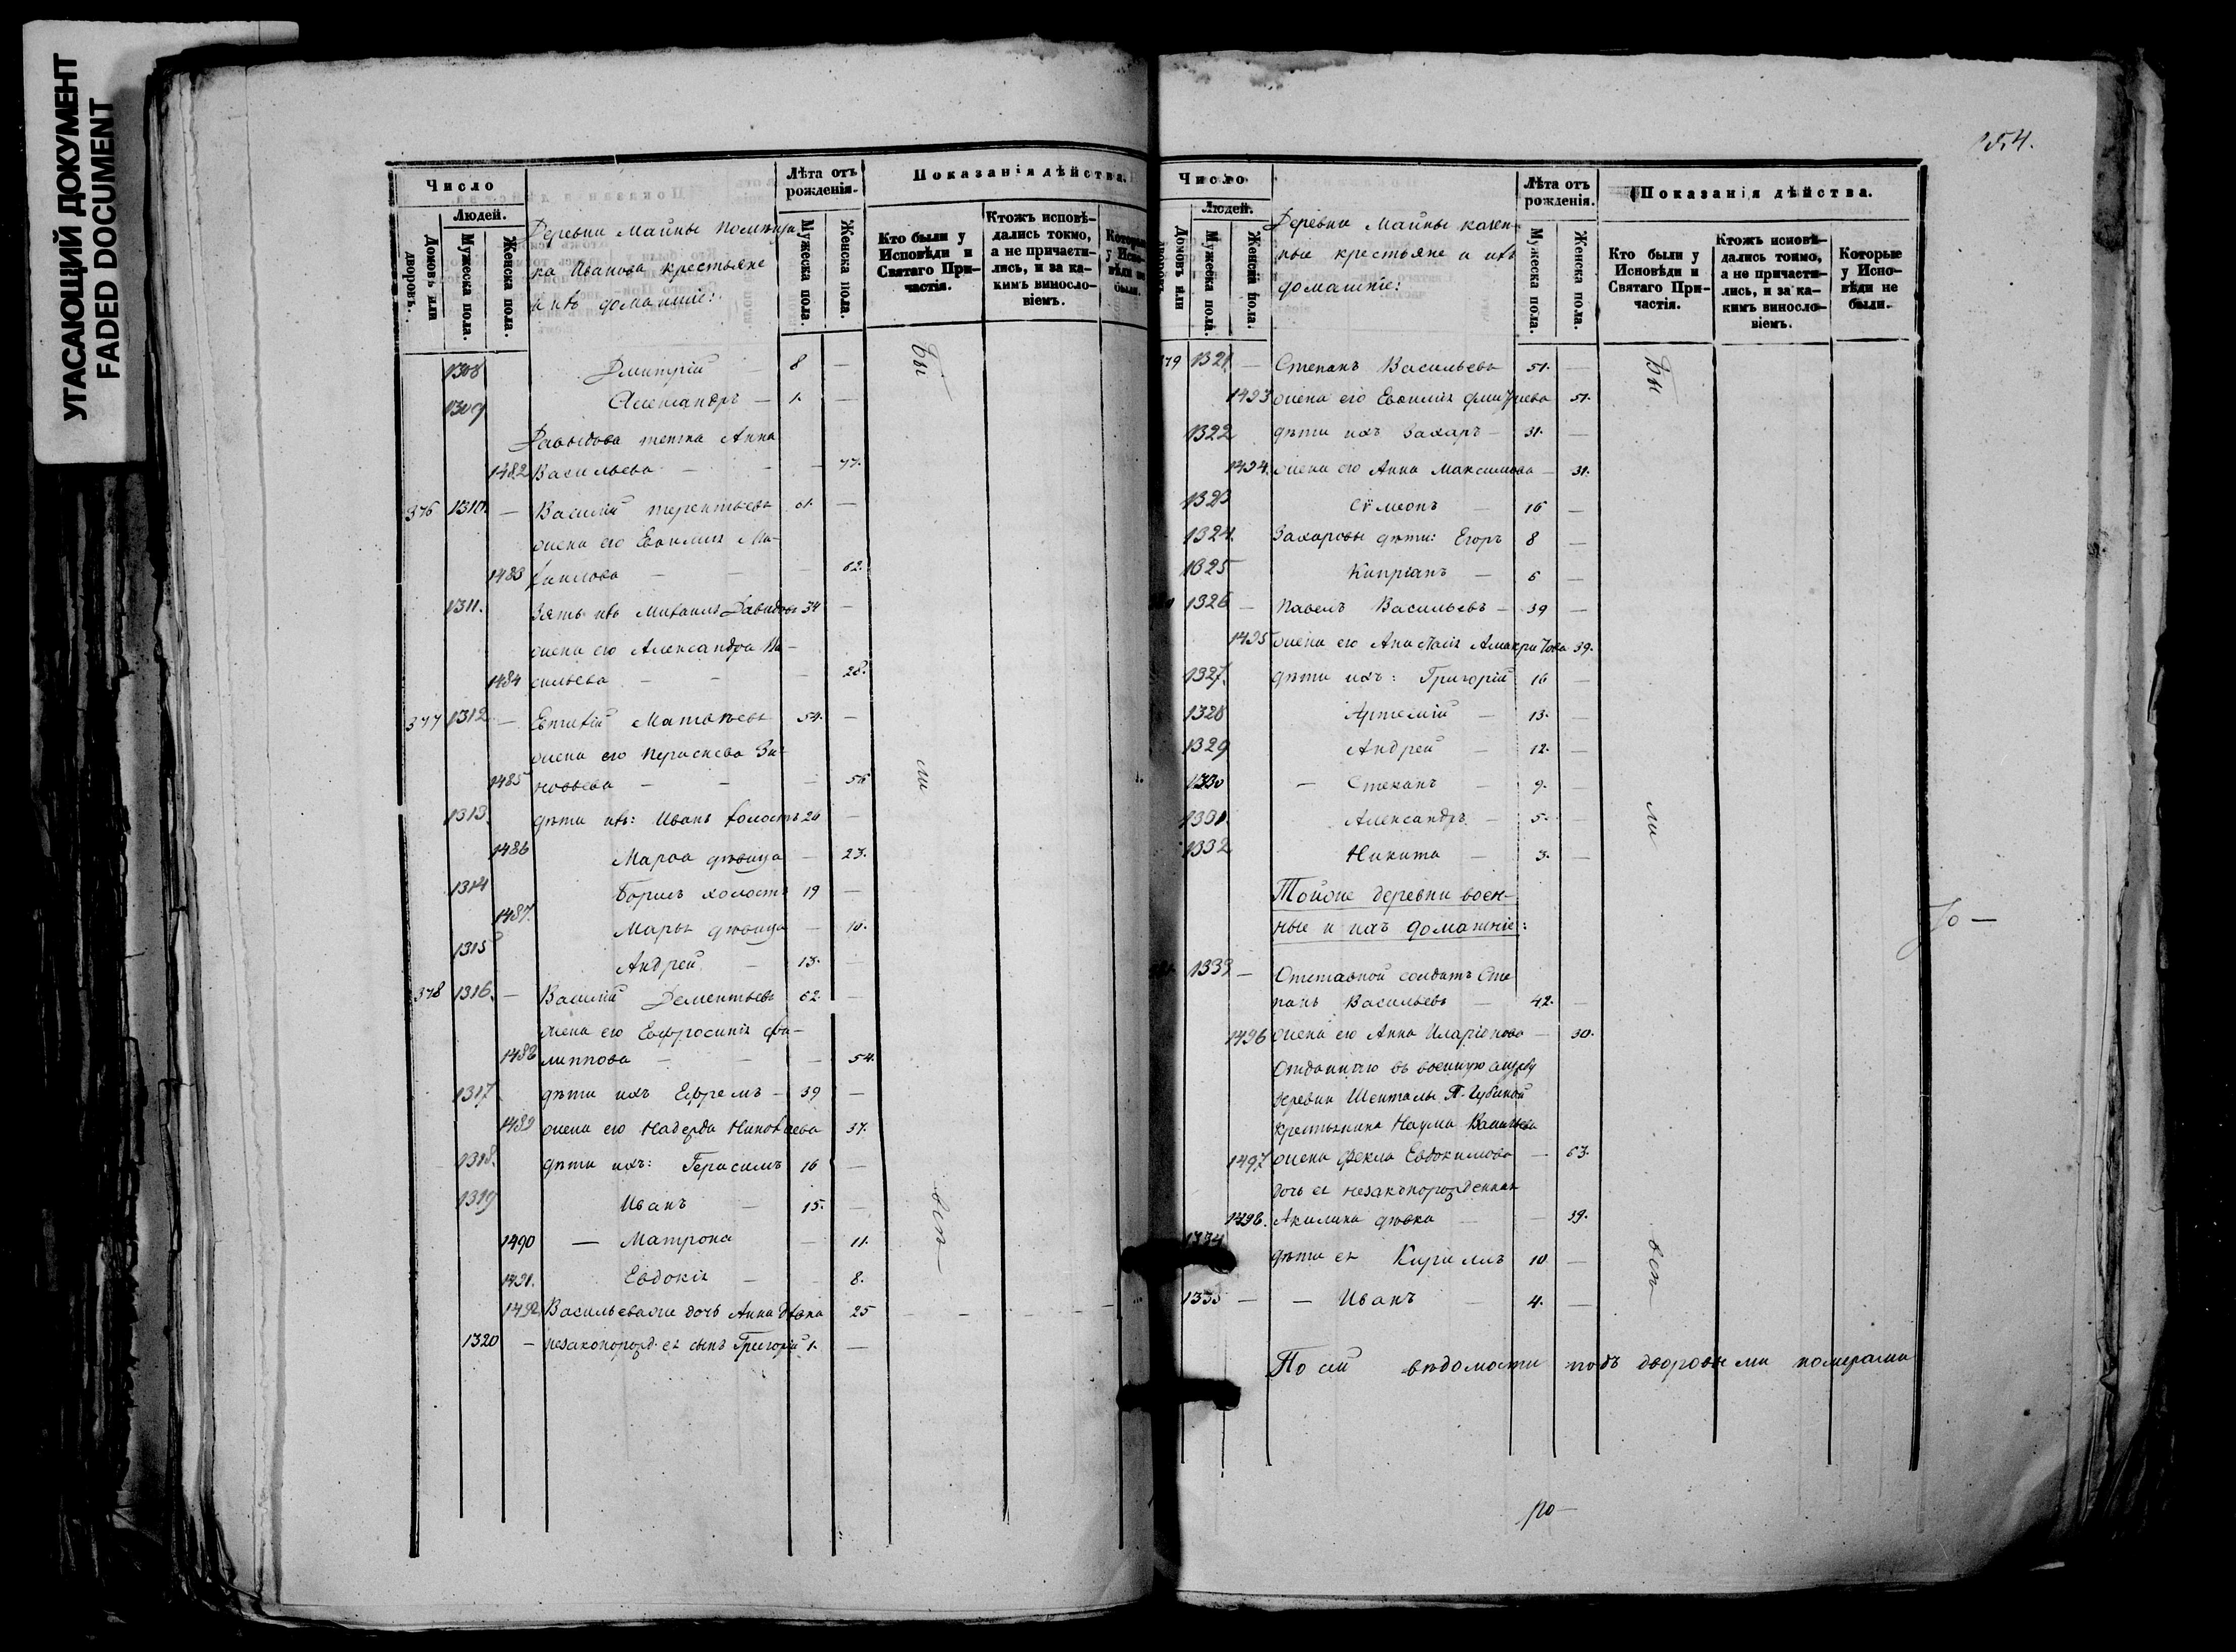 УГАСАЮЩИЙ ДОКУМЕНТ
FADED DOCUMENT
Число
Людей.
Домовъ или дворовъ.
Мужеска пола.
Женска пола.
Деревни Майны помѣщи
ка Иванова крестьяне
и ихъ домашніе:
Лѣта отъ рожденія.
Мужеска пола.
Женска пола.
Показанія дѣйства.
Кто были у Исповѣди и Святаго Причастія.
Ктожъ исповѣдались токмо, а не причастились, и за какимъ винословіемъ.
Которые у Испо-вѣди не были.
1308 Дмитрій 8 —
1309 Александръ — 1. —
Давыдова тетка Анна
1482 Васильева — — — 77.
376 1310. — Василій Терентьевъ 61. —
жена его Евфимія Ма-
1483 — — — 62.
1311. Зять ихъ Михаилъ Давидовъ 34 —
жена его Александра Ва-
1484 сильева — — — 28.
377 1312 — Евтихій Матвѣевъ 54. —
жена его Параскева Зи-
1485 новьева — — — 56
1313. дѣти ихъ: Иванъ холостъ 26 —
1486 Марѳа дѣвица — 23.
1314 Борисъ холостъ 19 —
1487. Марья дѣвица — 16.
1315 Андрей — 13. —
378 1316. — Василій Дементьевъ 62. —
жена его Евфросинія Фи-
1488 липпова — — — 54.
1317 дѣти ихъ Ефремъ — 39 —
1489 жена его Надежда Николаева 37.
1318. дѣти ихъ: Герасимъ 16 —
1319 Иванъ — 15. —
1490 — Матрона — 11.
1491. Евдокія — — 8.
1492 Васильева же дочь Анна дѣвка 25 — — — —
1320 — незаконорожд. ея сынъ Григорій 1. —
бы
ли
всѣ
254.
Число
Людей.
Домовъ или дворовъ.
Мужеска пола.
Женска пола.
Деревни Майны казен-
ные крестьяне и ихъ
домашніе:
Лѣта отъ рожденія.
Мужеска пола.
Женска пола.
Показанія дѣйства.
Кто были у Исповѣди и Святаго Причастія.
Ктожъ исповѣдались токмо, а не причастились, и за какимъ винословіемъ.
Которые у Исповѣди не были.
379 1321 — Степанъ Васильевъ 51. —
1493 жена его Евфимія Дмитріева 51.
1322 дѣти ихъ Захаръ — 31. —
1494. жена его Анна Максимова — 31.
1323 Сѵмеонъ — 16 —
1324. Захаровы дѣти: Егоръ 8 —
1325 Кипріанъ — 6 —
1326 — Павелъ Васильевъ — 39 —
1495 жена его Анастасія 39.
1327. дѣти ихъ: Григорій 16 —
1328 Артемій — 13. —
1329 Андрей — 12. —
1330 — Степанъ — 9. —
1331. Александръ — 5. —
1332 Никита — 3. —
Тойже деревни воен-
ные и ихъ домашніе:
1333 — Отставной солдатъ Сте
панъ Васильевъ — 42. —
1496 жена его Анна Иларіонова — 30.
Отданнаго въ военную службу
деревни Шенталы
крестьянина Наума Васильева
1497 жена Фекла Евдокимова — 63.
дочь ея незаконорожденная
1498. Акилина дѣвка — — 39.
1334 дѣти ея Кириллъ 10 —
1335 — — Иванъ — 4. —
бы
ли
всѣ
По сей вѣдомости подъ дворовыми номерами